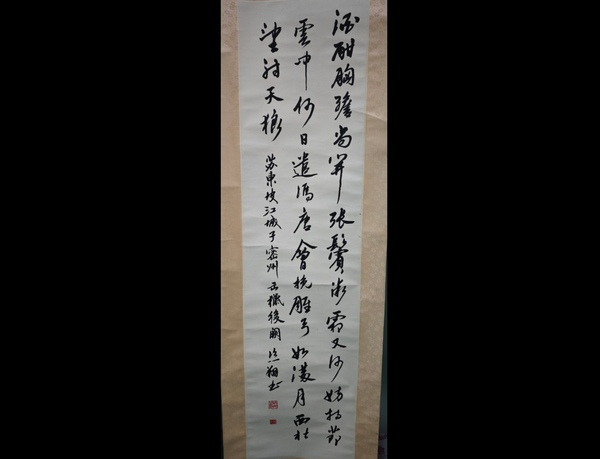 酒酣胸膽尚开張鬢微霜又何妨持節
雲中何日遣馮唐會挽雕弓如滿月西北
望射天狼
苏東坡江城子密州出獵後闋 翔书